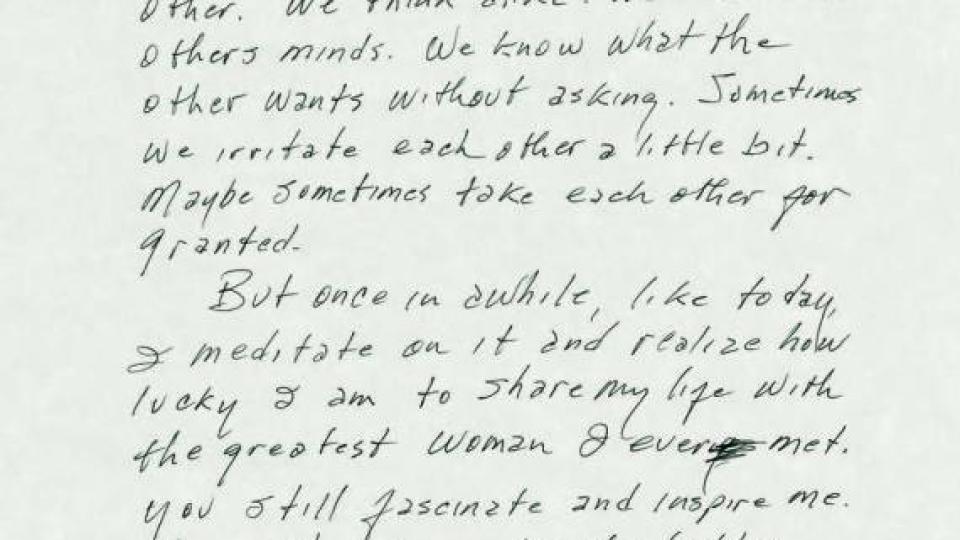 other. We think alike.
others minds. We know what the
other wants without asking. Sometimes
we irritate each other a little bit.
Maybe sometimes take each other for
granted.
But once in awhile, like today,
I meditate on it and realize how
lucky I am to share my life with
the greatest woman I ever met.
you still fascinate and inspire me.